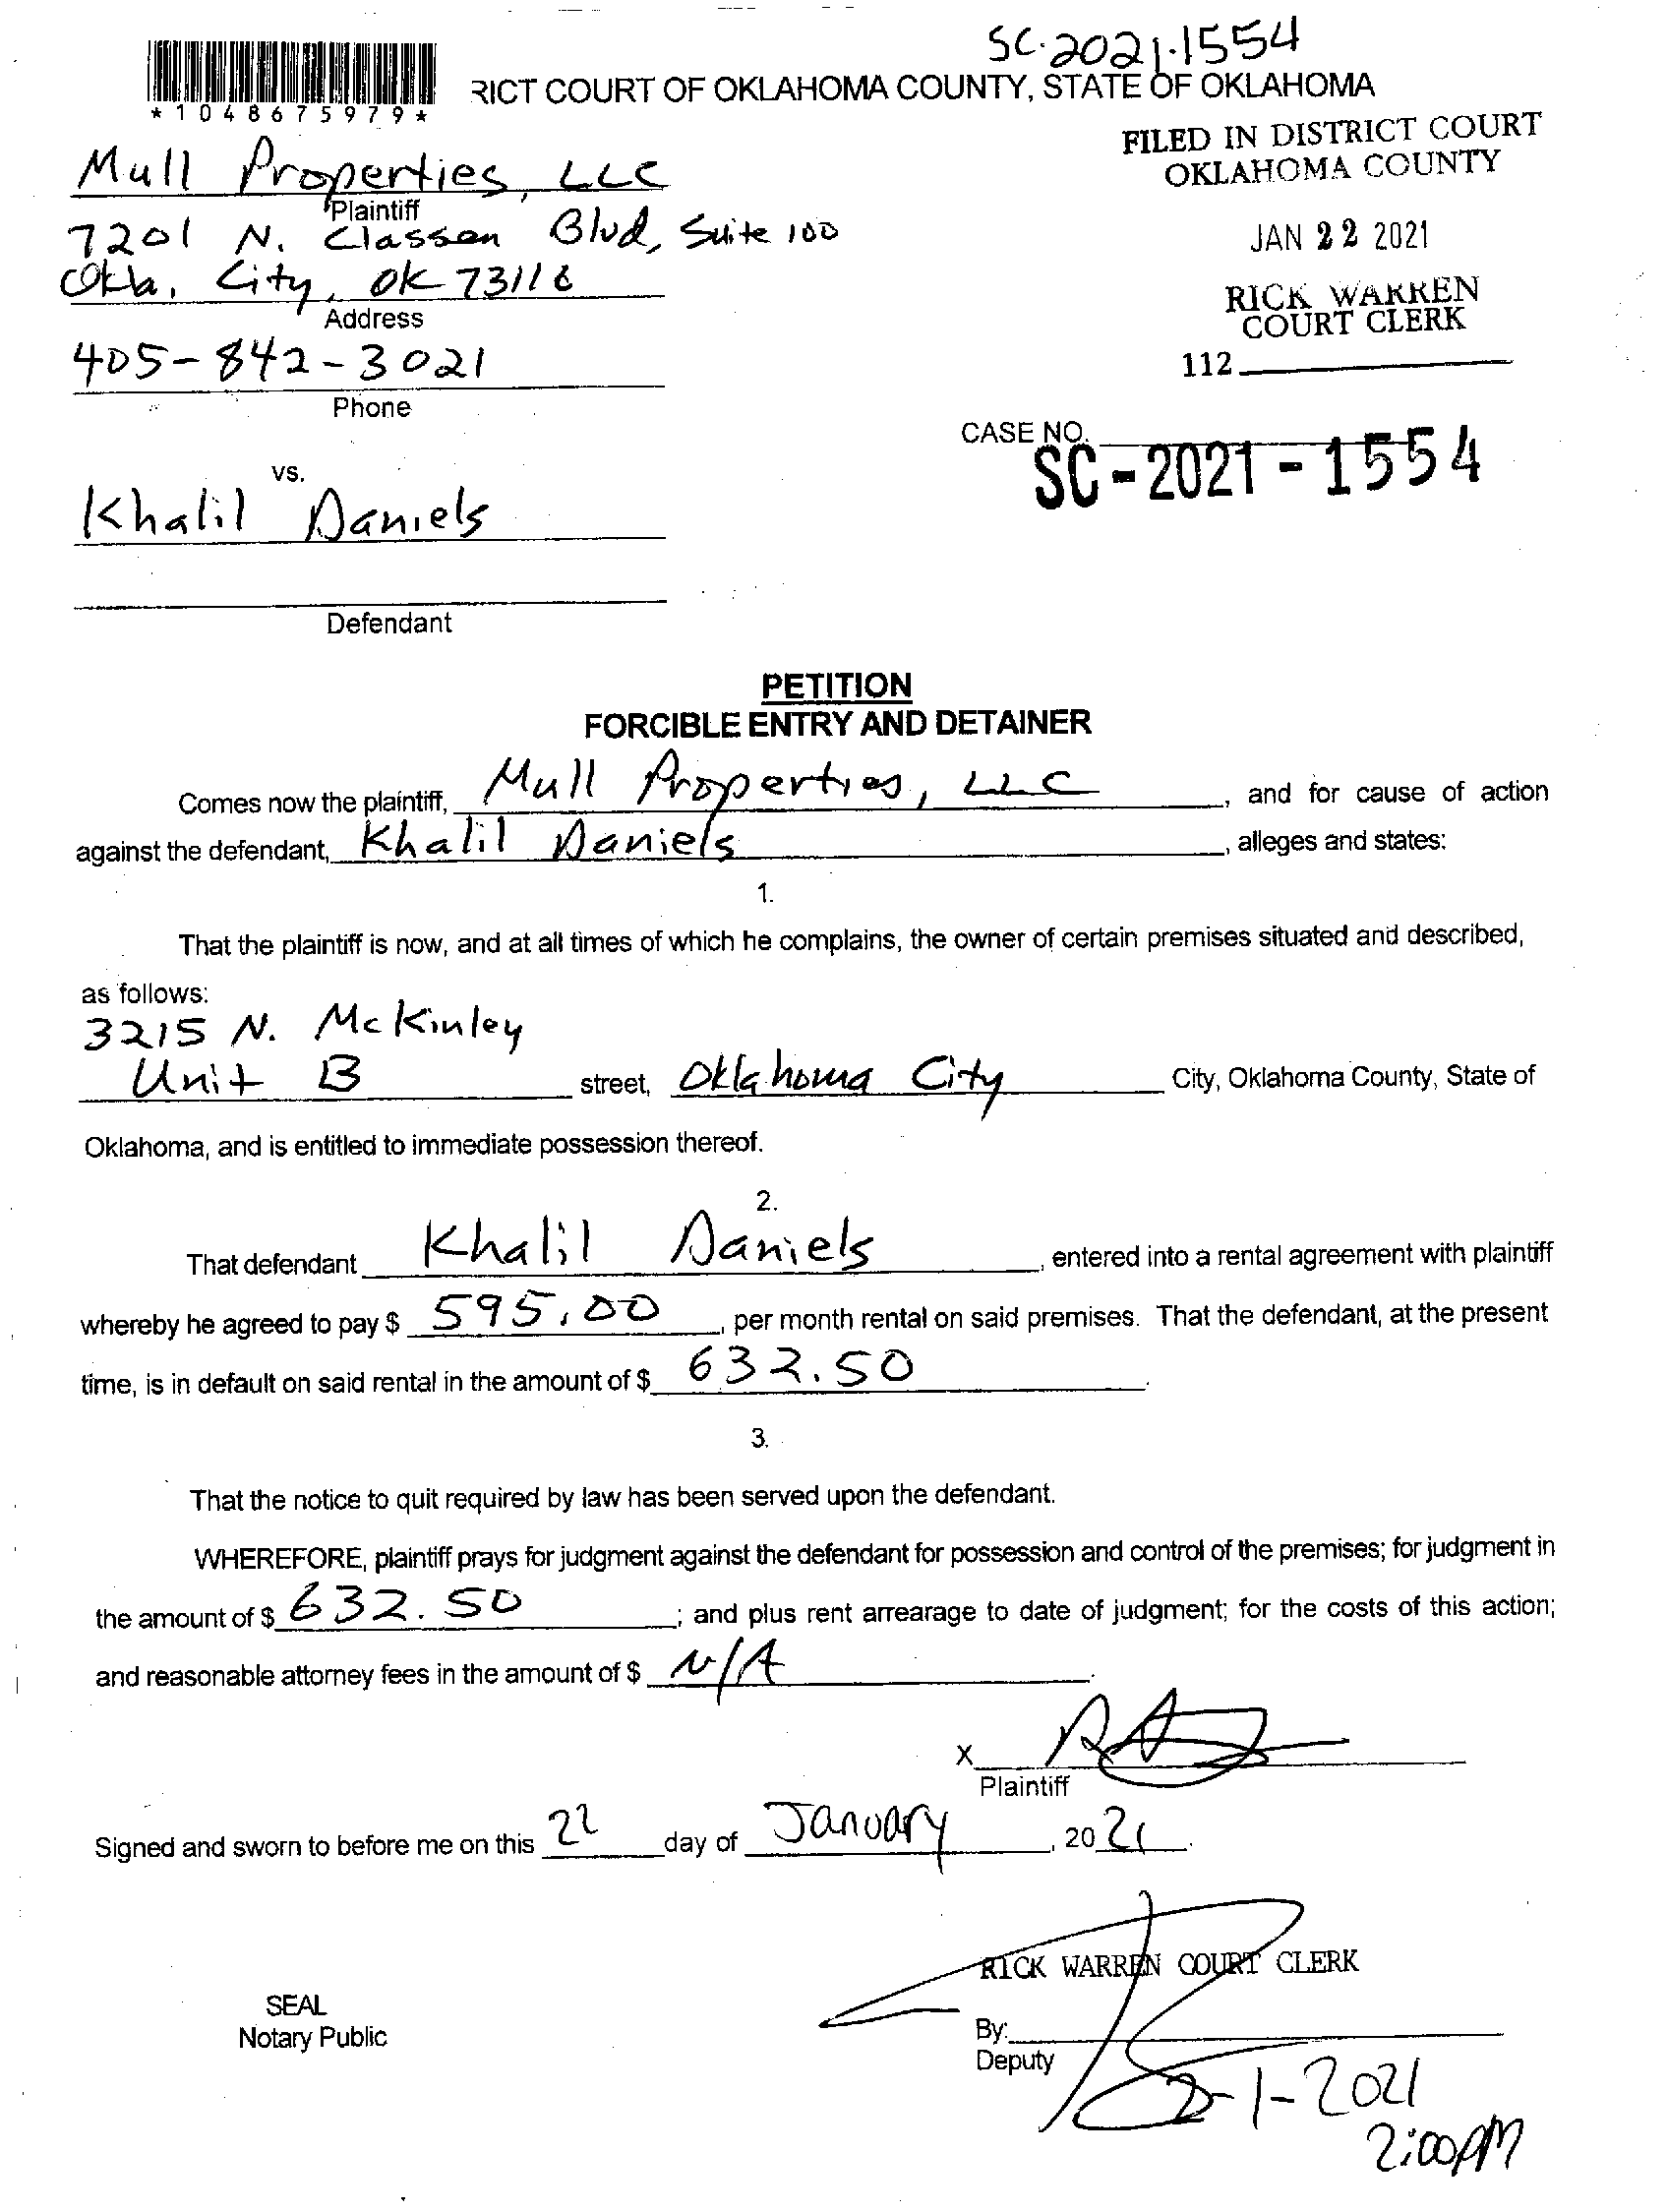 SC-2021-1554
*1048675979*
RICT COURT OF OKLAHOMA COUNTY, STATE OF OKLAHOMA
FILED IN DISTRICT COURT
OKLAHOMA COUNTY
Mull Properties, LLC
Plaintiff
7201 N. Classen Blvd, Suite 100
JAN 22 2021
Okla. City, OK 73116
Address
RICK WARREN
COURT CLERK
405-842-3021
112
Phone
CASE NO.
SC-2021-1554
vs.
Khalil Daniels
Defendant
PETITION
FORCIBLE ENTRY AND DETAINER
Comes now the plaintiff, Mull Properties, LLC, and for cause of action
against the defendant, Khalil Daniels, alleges and states:
1.
That the plaintiff is now, and at all times of which he complains, the owner of certain premises situated and described,
as follows:
3215 N. McKinley
Unit B street, Oklahoma City City, Oklahoma County, State of
Oklahoma, and is entitled to immediate possession thereof.
2.
That defendant Khalil Daniels, entered into a rental agreement with plaintiff
whereby he agreed to pay $ 595.00, per month rental on said premises. That the defendant, at the present
time, is in default on said rental in the amount of $ 632.50.
3.
That the notice to quit required by law has been served upon the defendant.
WHEREFORE, plaintiff prays for judgment against the defendant for possession and control of the premises; for judgment in
the amount of $ 632.50; and plus rent arrearage to date of judgment; for the costs of this action;
and reasonable attorney fees in the amount of $ N/A.
X
Plaintiff
Signed and sworn to before me on this 22 day of January, 2021.
RICK WARREN COURT CLERK
SEAL
Notary Public
By:
Deputy
2-1-2021
2:00PM